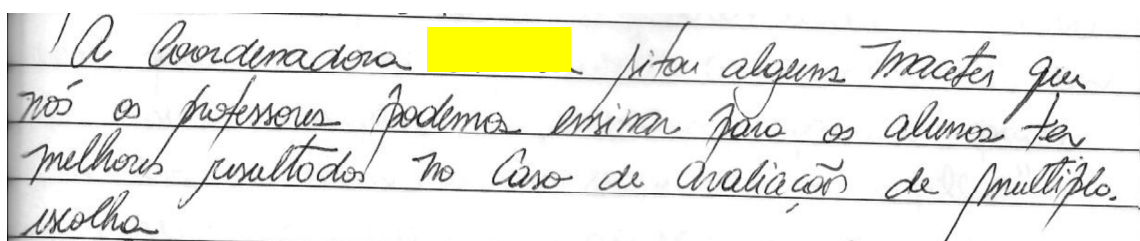 A Coordenadora citou alguns macetes que
nós os professores podemos ensinar para os alunos ter
melhores resultados no caso de avaliação de multipla.
escolha